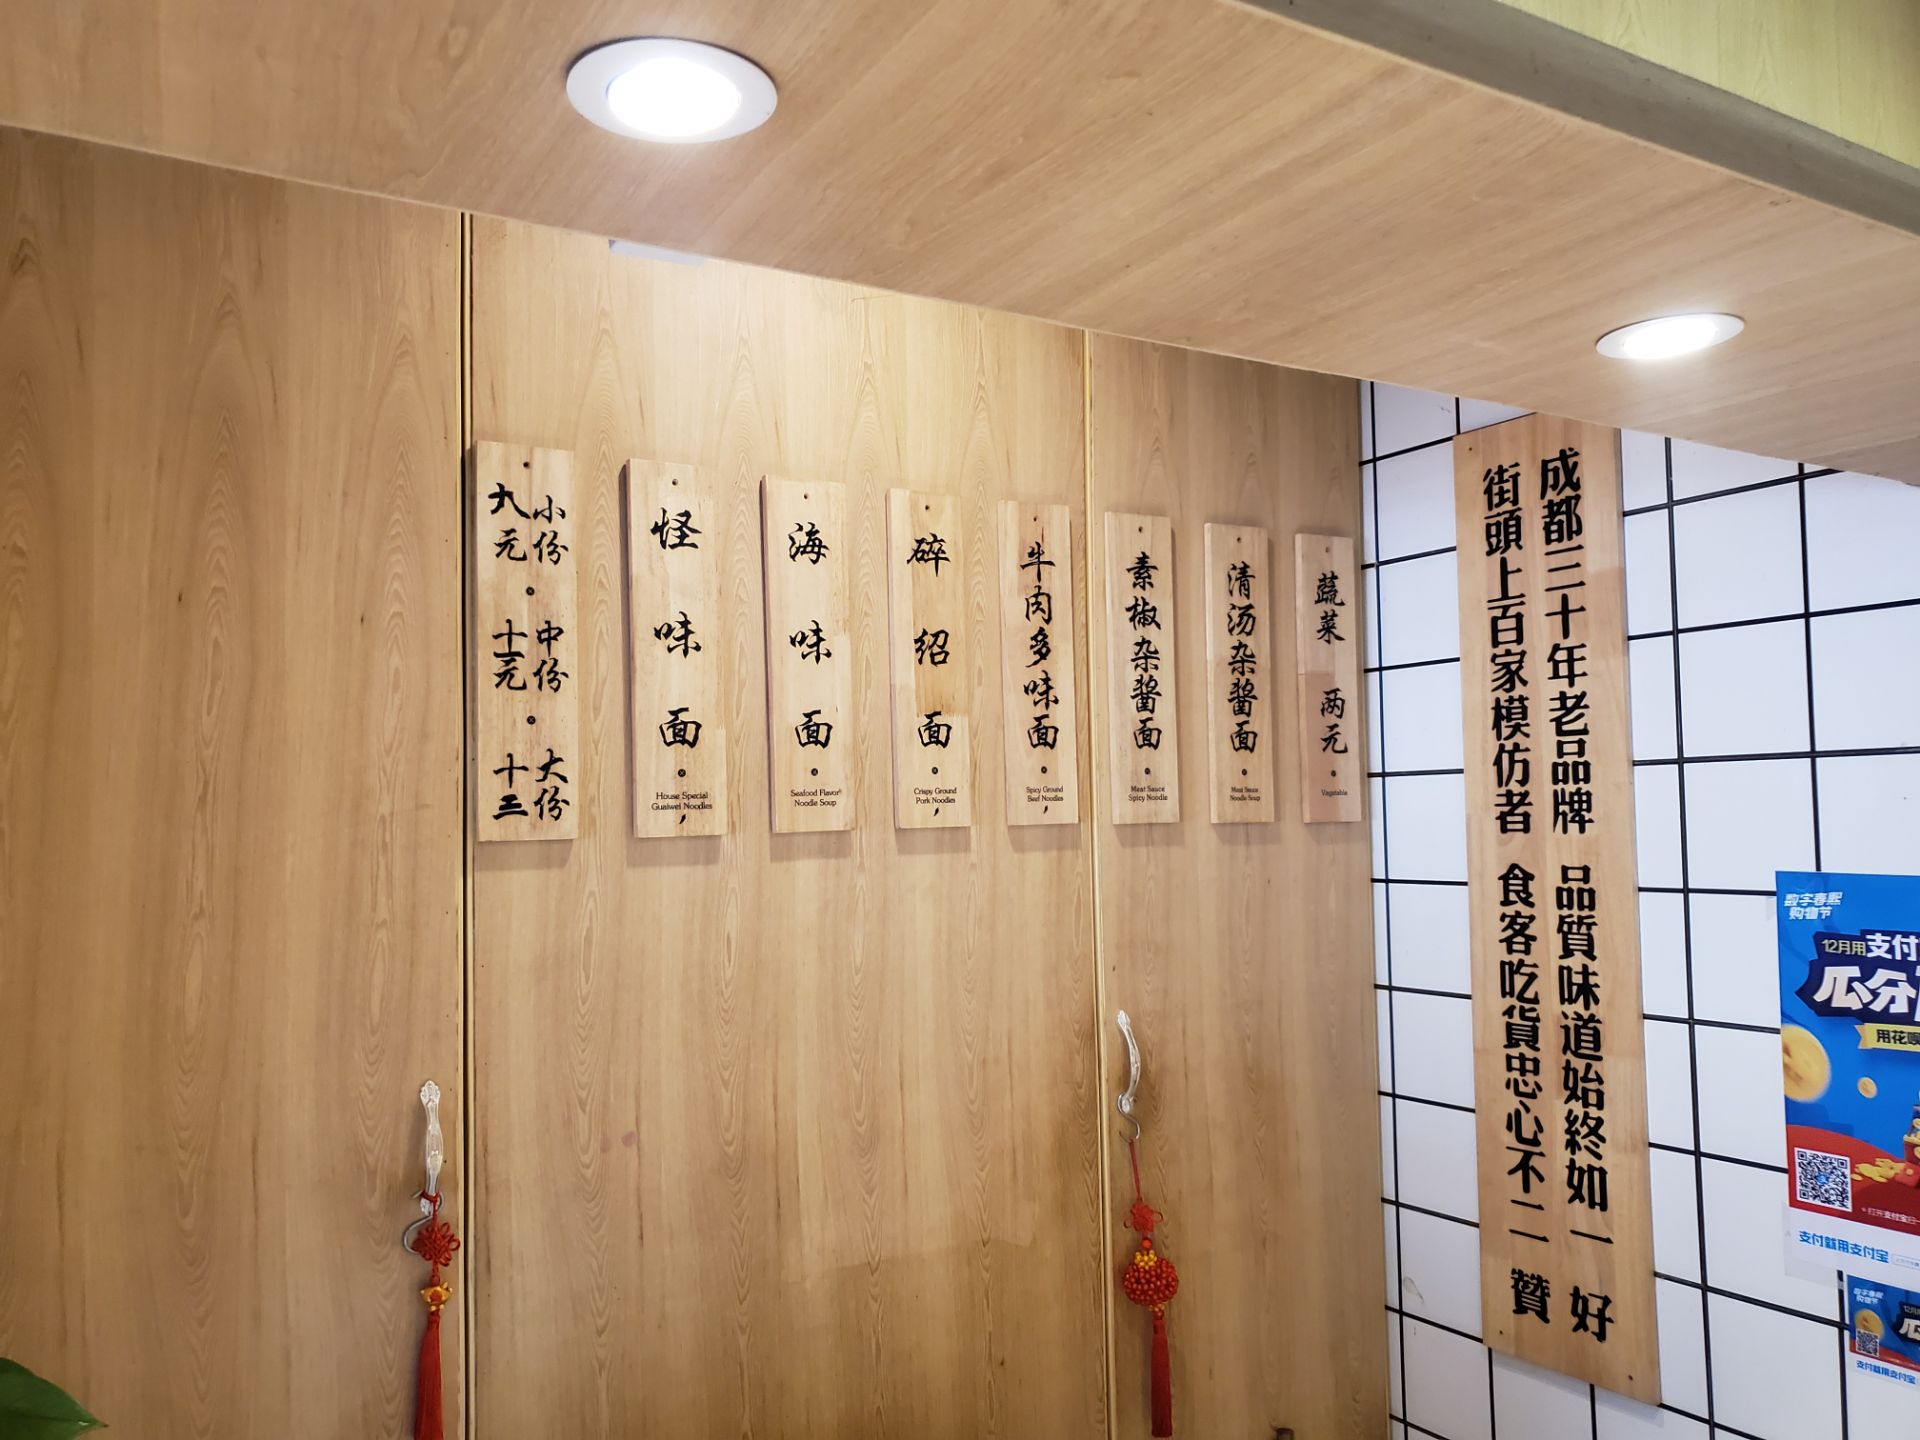 小份 中份 大份
九元 十一元 十三
怪味面
House Special
Guaiwei Noodles
海味面
Seafood Flavor
Noodle Soup
碎绍面
Crispy Ground
Pork Noodles
牛肉多味面
Spicy Ground
Beef Noodles
素椒杂酱面
Meat Sauce
Spicy Noodle
清汤杂酱面
Meat Sauce
Noodle Soup
蔬菜 两元
Vegetable
成都三十年老品牌 品質味道始終如一 好
街頭上百家模仿者 食客吃貨忠心不二 贊
数字春熙
购物节
12月用支付
瓜分
用花呗
支付就用支付宝
数字春熙
购物节
支付就用支付宝